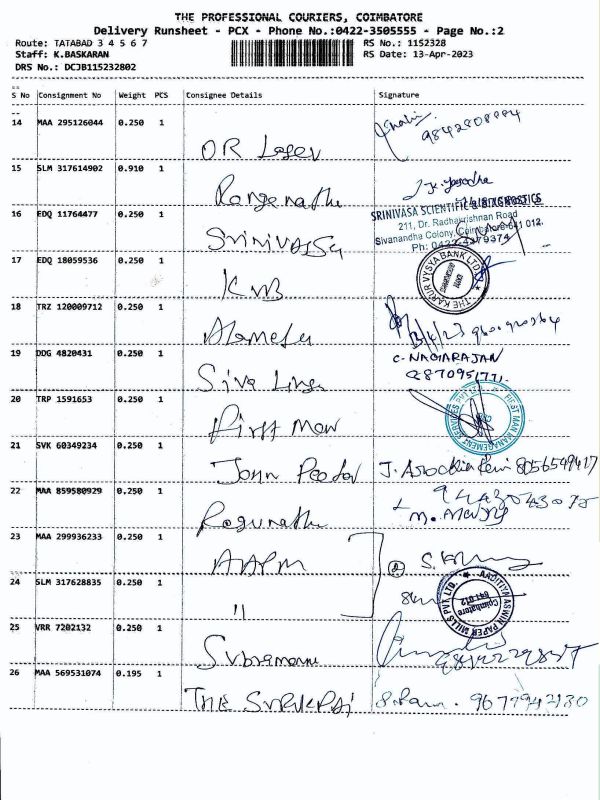 THE PROFESSIONAL COURIERS, COIMBATORE
Delivery Runsheet - PCX - Phone No.:0422-3505555 - Page No.:2
Route: TATABAD 3 4 5 6 7 RS No.: 1152328
Staff: K.BASKARAN RS Date: 13-Apr-2023
DRS No.: DCJB115232802
S No Consignment No Weight PCS Consignee Details Signature
14 MAA 295126044 0.250 1
OR Laser
15 SLM 317614902 0.910 1
Ranganatha
16 EDQ 11764477 0.250 1 SRINIVASA SCIENTIFIC & DIAGNOSTICS
211, Dr. Radhakrishnan Road
Srinivasa Sivanandha Colony, Coimbatore-641 012.
Ph: 0422-4379374
17 EDQ 18059536 0.250 1
KVB THE KARUR VYSYA BANK LTD
18 TRZ 120009712 0.250 1
Alamelu 13/4/23
19 DDG 4820431 0.250 1 C. NAGARAJAN
Siva Linga
20 TRP 1591653 0.250 1
First Man FIRST MAN MANAGEMENT SERVICES PVT LTD
21 SVK 60349234 0.250 1
John Peter 8056549417
22 MAA 859580929 0.250 1
Ragunatha
23 MAA 299936233 0.250 1
AAPM 2
24 SLM 317628835 0.250 1
" AADITIYA ASWIN PAPER MILLS PVT LTD. Coimbatore 641 012
25 VRR 7202132 0.250 1
Subramani
26 MAA 569531074 0.195 1
THE